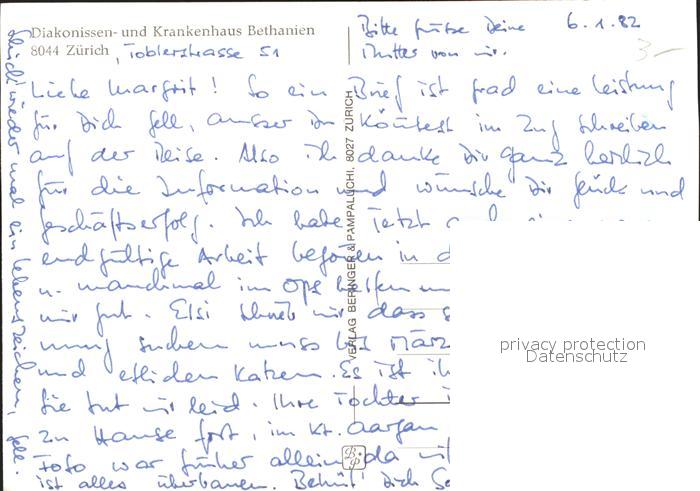 Diakonissen- und Krankenhaus Bethanien
8044 Zürich, Toblerstrasse 51
Bitte grüsse Deine 6.1.82
Mutter von mir.
3-
Liebe Margrit! So ein Brief ist grad eine Leistung
für Dich gell, ausser Du könntest im Zug schreiben
auf der Reise. Also ich danke Dir ganz herzlich
für die Information und wünsche Dir Glück und
Geschäftserfolg. Ich habe jetzt
endgültige Arbeit begonnen in d
u. manchmal im Ops helfen
mir gut. Elsi schrieb mir dass s
nung suchen muss bis März
und etlichen Katzen. Es ist ih
Sie tut mir leid. Ihre Tochter i
zu Hause fort, im Kt. Aargau
Foto war früher allein da
ist alles überbauen. Behüt' Dich
wieder mal ein Lebenszeichen, gell.
VERLAG BERINGER & PAMPALUCHI, 8027 ZÜRICH
BP
privacy protection
Datenschutz